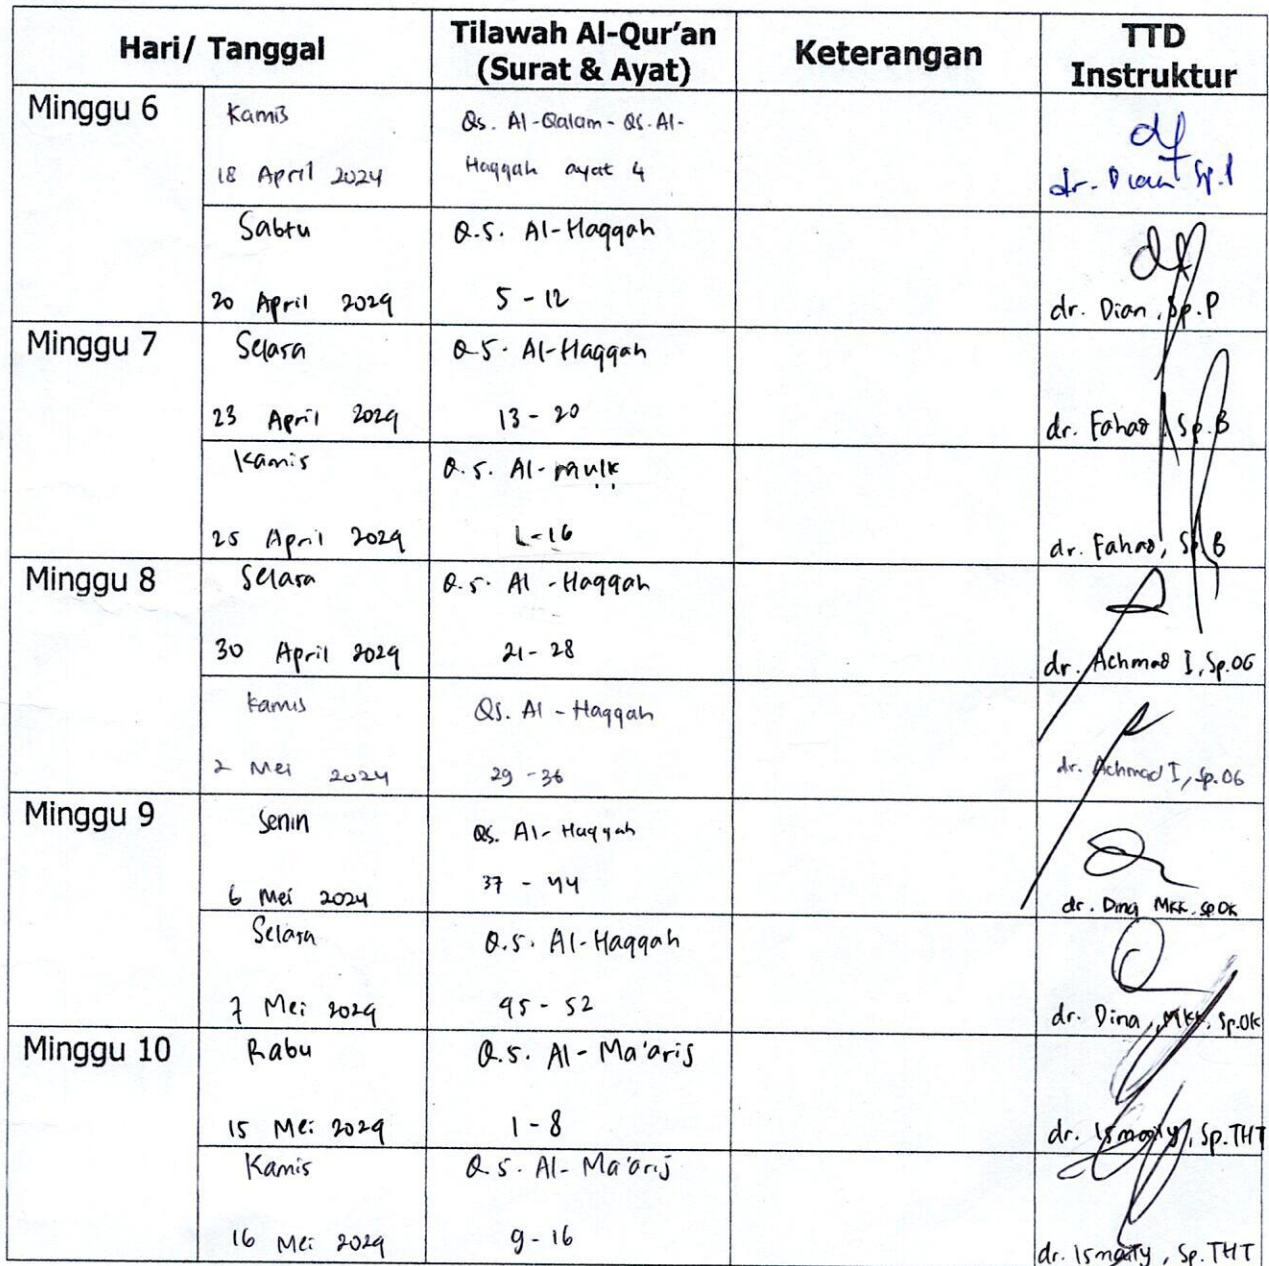 Hari/ Tanggal
Tilawah Al-Qur'an
(Surat & Ayat)
Keterangan
TTD
Instruktur
Minggu 6
Kamis
18 April 2024
Qs. Al-Qalam - QS. Al-
Haqqah ayat 4
dr. Dian Sp.P
Sabtu
20 April 2024
Q.S. Al-Haqqah
5 - 12
dr. Dian, Sp.P
Minggu 7
Selasa
23 April 2024
Q.S. Al-Haqqah
13 - 20
dr. Fahad, Sp.B
Kamis
25 April 2024
Q.S. Al-Mulk
1-16
dr. Fahad, Sp.B
Minggu 8
Selasa
30 April 2024
Q.S. Al-Haqqah
21-28
dr. Achmad I, Sp.OG
Kamis
2 Mei 2024
Qs. Al-Haqqah
29-36
dr. Achmad I, Sp.OG
Minggu 9
Senin
6 Mei 2024
Qs. Al-Haqqah
37 - 44
dr. Dina MKK. SpOK
Selasa
7 Mei 2024
Q.S. Al-Haqqah
45 - 52
dr. Dina, MKK, Sp.OK
Minggu 10
Rabu
15 Mei 2024
Q.S. Al-Ma'arij
1 - 8
dr. Ismaity, Sp.THT
Kamis
16 Mei 2024
Q.S. Al-Ma'arij
9-16
dr. Ismaity, Sp.THT